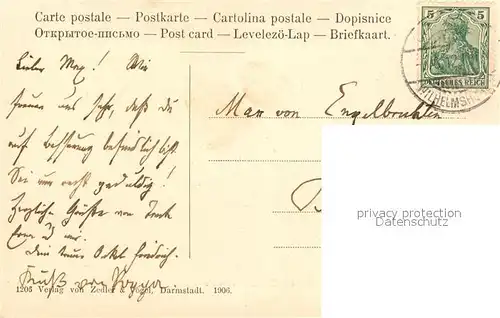 Carte postale — Postkarte — Cartolina postale — Dopisnice
Открытое-письмо — Post card — Levelező-Lap — Briefkaart.
5 5
DEUTSCHES REICH
WILHELMSH
Lieber Max! Wir
freuen uns sehr, daß du
auf Besserung befindlich bist.
Sei nur recht geduldig!
Herzliche Grüße von
dein treuer Onkel Friedrich.
Gruß von
Max von Engelbrechten
privacy protection
Datenschutz
1205 Verlag von Zedler & Vogel, Darmstadt. 1906.